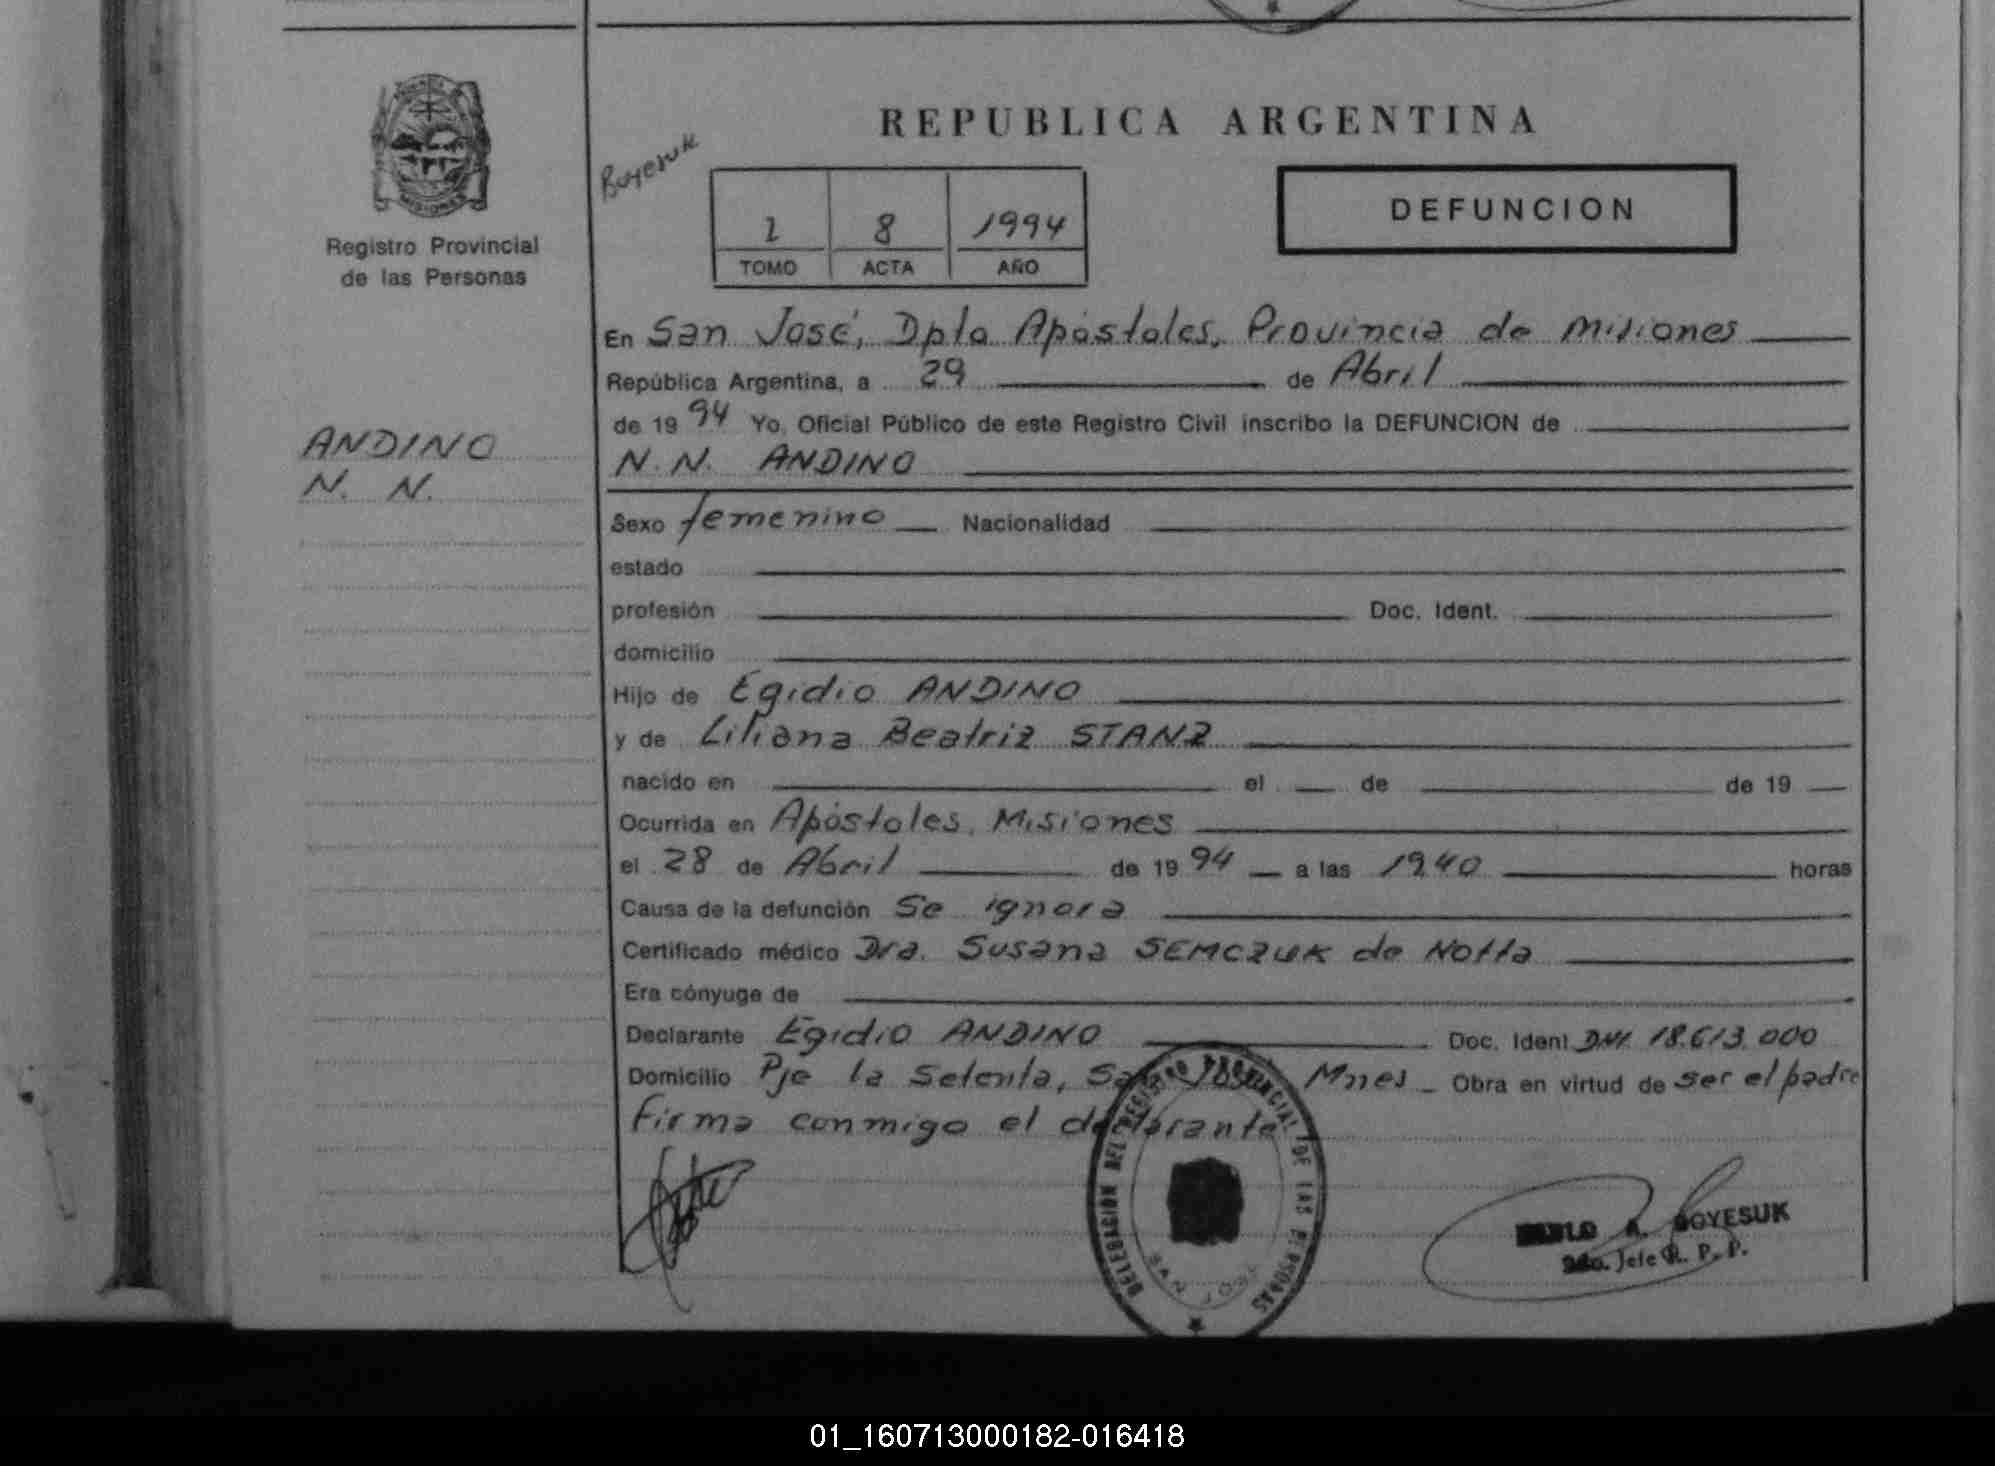 REPUBLICA ARGENTINA
MISIONES
Registro Provincial
de las Personas
Boyesuk
1 8 1994
TOMO ACTA AÑO
DEFUNCION
En San José, Dpto Apóstoles, Provincia de Misiones
República Argentina, a 29 de Abril
de 19 94 Yo, Oficial Público de este Registro Civil inscribo la DEFUNCION de
ANDINO
N. N.
N. N. ANDINO
Sexo femenino Nacionalidad
estado
profesión Doc. Ident.
domicilio
Hijo de Egidio ANDINO
y de Liliana Beatriz STANZ
nacido en el de de 19
Ocurrida en Apóstoles, Misiones
el 28 de Abril de 19 94 a las 19.40 horas
Causa de la defunción Se ignora
Certificado médico Dra. Susana SEMCZUK de Notta
Era cónyuge de
Declarante Egidio ANDINO Doc. Ident DNI. 18.613.000
Domicilio Pje la Setenta, San José Mnes Obra en virtud de ser el padre
Firma conmigo el declarante
DELEGACION DEL REGISTRO PROVINCIAL DE LAS PERSONAS
SAN JOSE
A. BOYESUK
Jefe R. P. P.
01_160713000182-016418